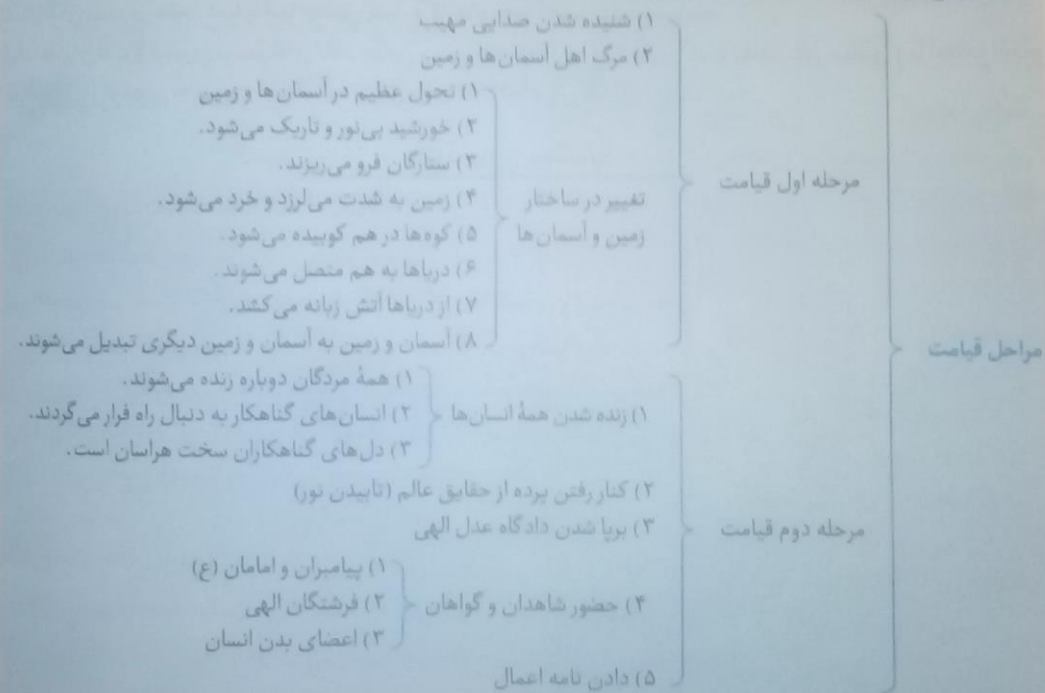 مراحل قیامت
مرحله اول قیامت
۱) شنیده شدن صدایی مهیب
۲) مرگ اهل آسمان‌ها و زمین
تغییر در ساختار
زمین و آسمان‌ها
۱) تحول عظیم در آسمان‌ها و زمین
۲) خورشید بی‌نور و تاریک می‌شود.
۳) ستارگان فرو می‌ریزند.
۴) زمین به شدت می‌لرزد و خرد می‌شود.
۵) کوه‌ها در هم کوبیده می‌شود.
۶) دریاها به هم متصل می‌شوند.
۷) از دریاها آتش زبانه می‌کشد.
۸) آسمان و زمین به آسمان و زمین دیگری تبدیل می‌شوند.
مرحله دوم قیامت
۱) زنده شدن همهٔ انسان‌ها
۱) همهٔ مردگان دوباره زنده می‌شوند.
۲) انسان‌های گناهکار به دنبال راه فرار می‌گردند.
۳) دل‌های گناهکاران سخت هراسان است.
۲) کنار رفتن پرده از حقایق عالم (تابیدن نور)
۳) برپا شدن دادگاه عدل الهی
۴) حضور شاهدان و گواهان
۱) پیامبران و امامان (ع)
۲) فرشتگان الهی
۳) اعضای بدن انسان
۵) دادن نامه اعمال